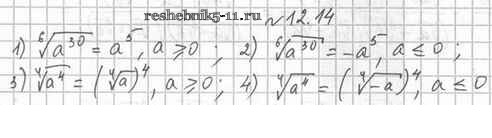 www.reshebnik5-11.ru
№12.14
1) ⁶√a³⁰ = a⁵, a ≥ 0 ; 2) ⁶√a³⁰ = -a⁵, a ≤ 0 ;
3) ⁴√a⁴ = (⁴√a)⁴, a ≥ 0 ; 4) ⁴√a⁴ = (⁴√-a)⁴, a ≤ 0